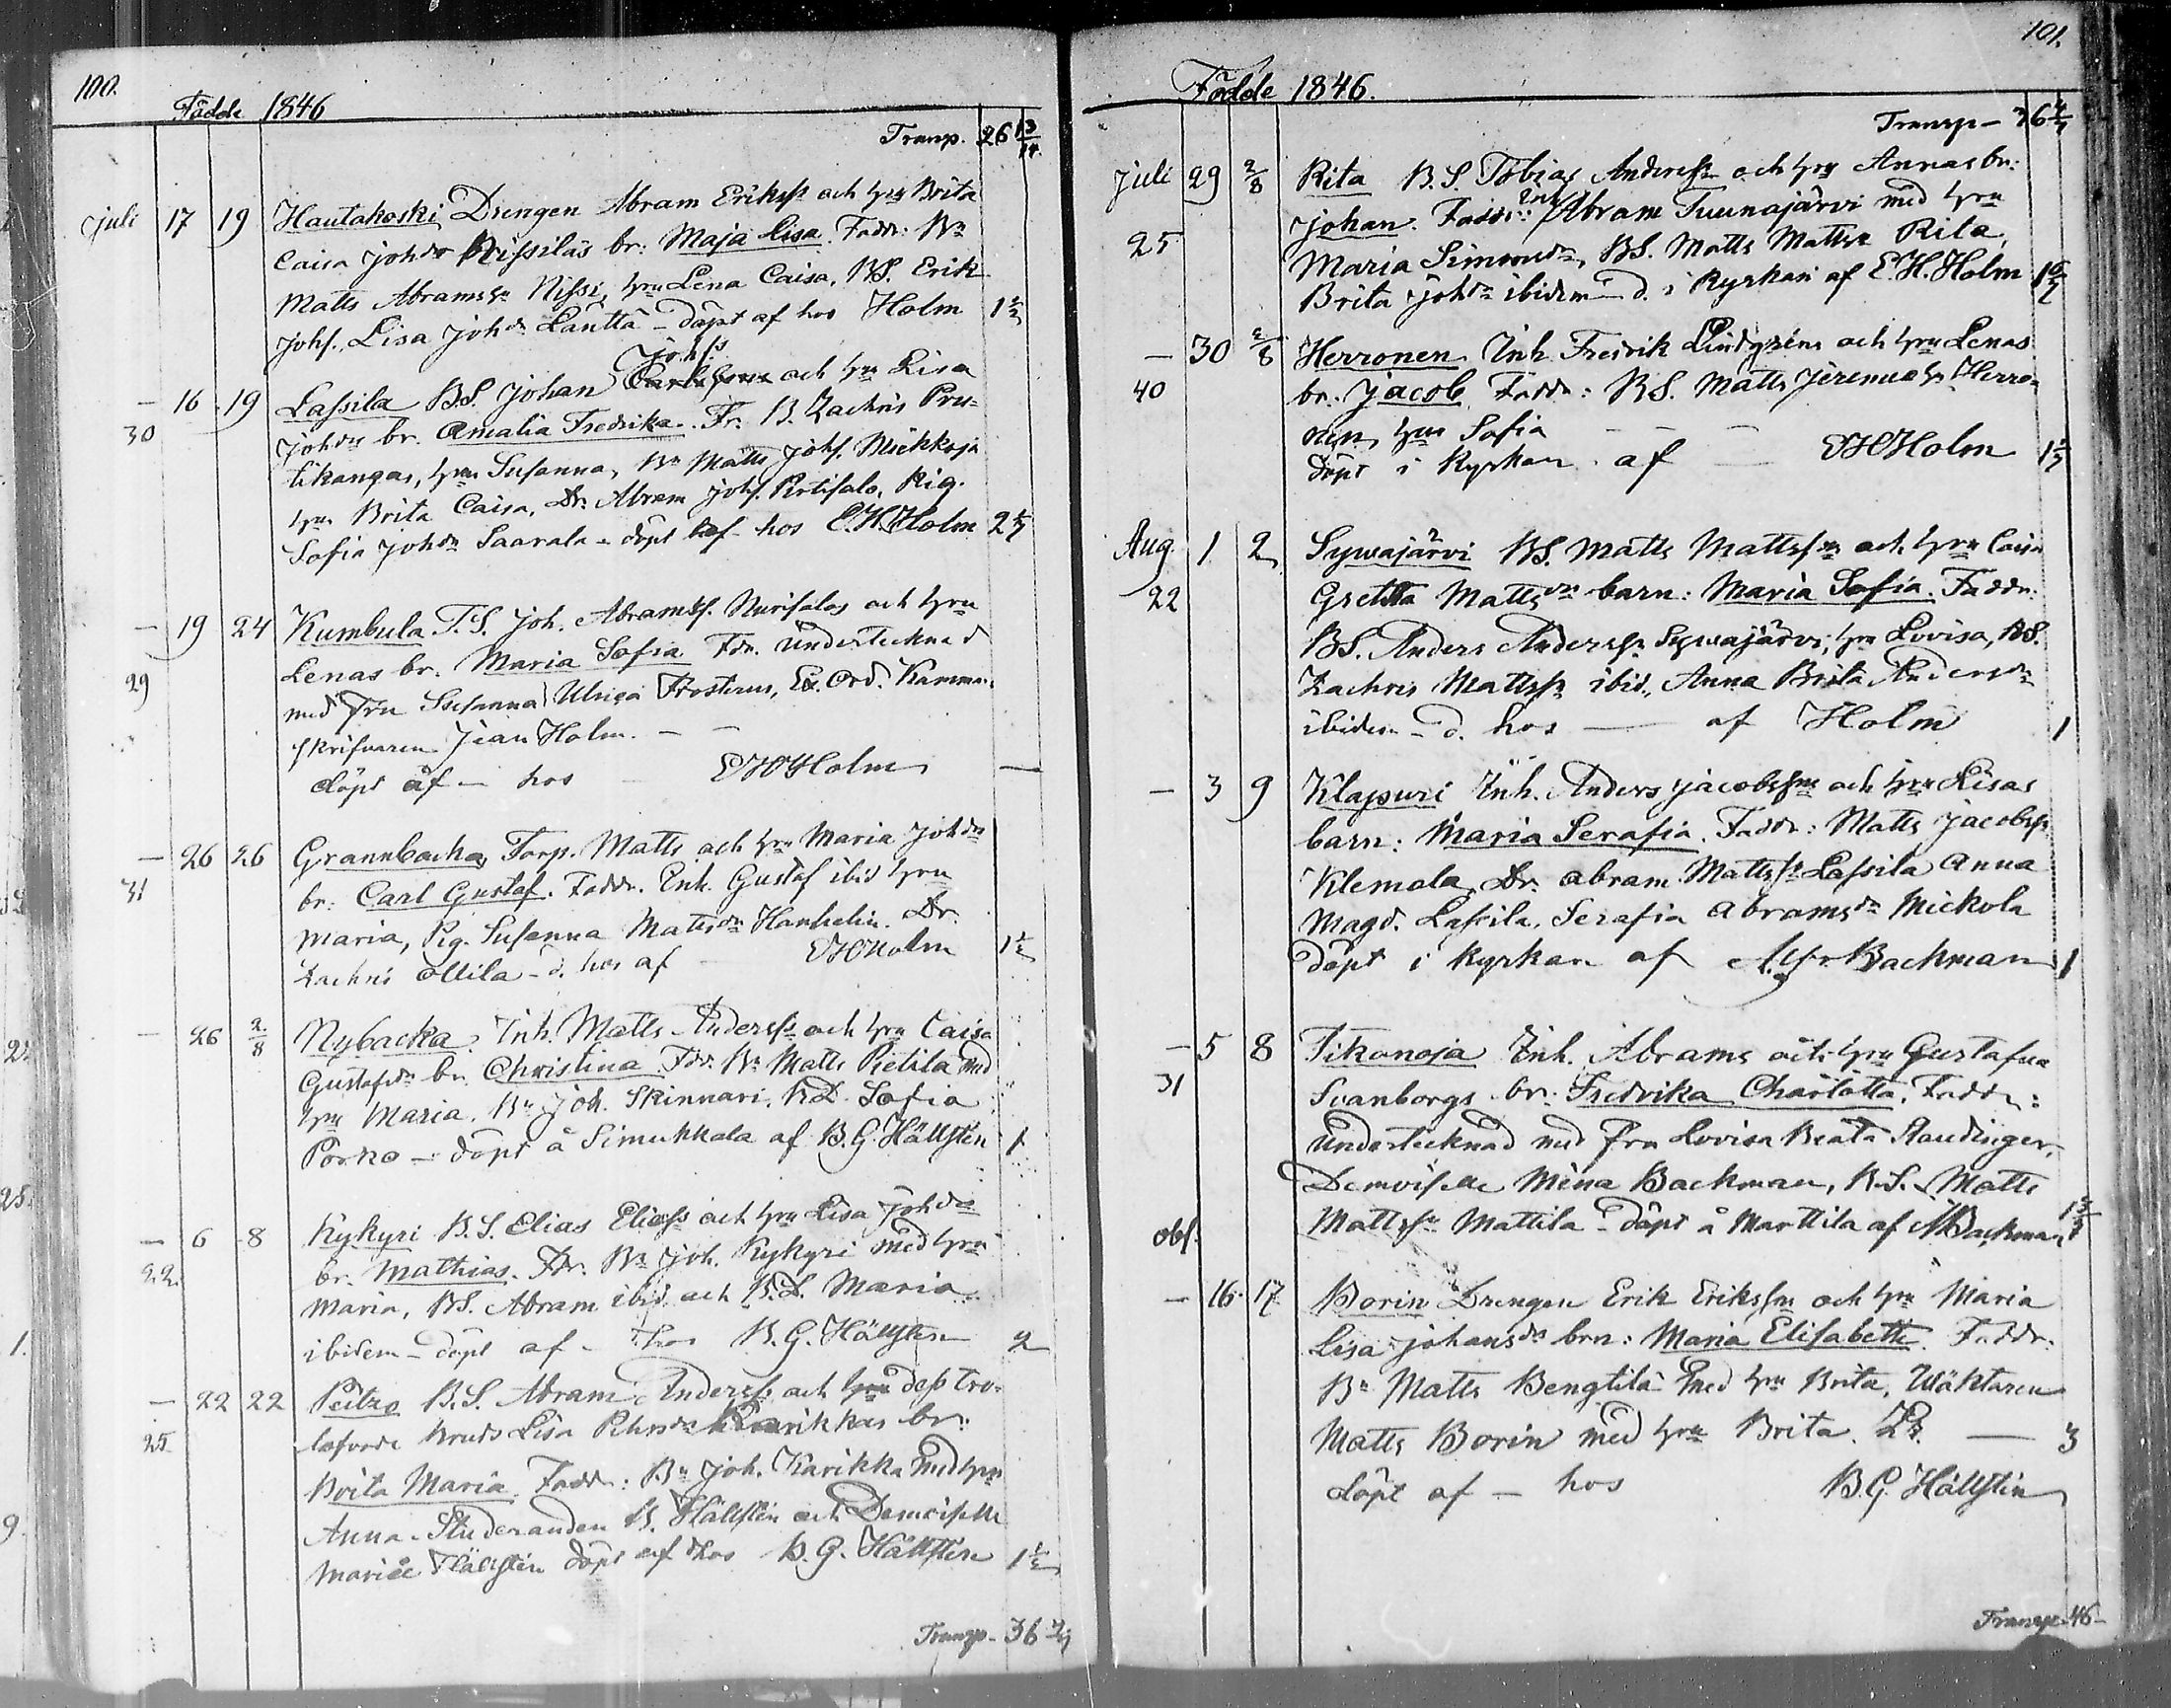 100.
Födde 1846
Transp. 26 13/14.
Juli 17 19 Hautakoski Drengen Abram Erikss. och hru Brita
Caisa Johdr Nissiläs br: Maja Lisa. Fadd: Bn
Matts Abramss. Nissi, hru Lena Caisa, BS. Erik
Johs. Lisa Johdr Lanttä - döpt af hos Holm 1 1/2
Johss
- 16. 19 Lassila B.S. Johan och hru Lisa
30 Johdr br. Amalia Fredrika. Fr. B. Zachris Pru-
tikangas, hru Susanna, Bn Matts Johs. Miekkoja
hru Brita Caisa, Dr. Abram Johs. Pig.
Sofia Johdr Saarala - döpt af hos E.H. Holm 2
- 19 24 Kumbula T.S. Joh. Abramss. och hru
29 Lenas br. Maria Sofia Fdr. Undertecknad
med Fru Susanna Ulrica Frosterus, Ex. Ord. Kamma-
skrifvaren Jean Holm. - -
döpt af - hos - EHHolm -
- 26 26 Grannbacka, Torp. Matts och hru Maria Johdr
31 br: Carl Gustaf. Faddr. Inh. Gustaf ibid hru
Maria, Pig. Susanna Matts dr Hanhelin. Dr.
Zachris Ollila - d. hos af EHHolm 1 1/2
- 26 2/8 Nybacka. Inh. Matts Anderss. och hru Caisa
Gustafsdr br. Christina. Fdr. Bn Matts Pietilä med
hru Maria. Bn Joh. Skinnari. B.D. Sofia
Porko - döpt å Simukkala af B.G. Hällsten 1
- 6 8 Kykyri B.S. Elias Eliass och hru Lisa Johdr
22. br. Mathias. Fdr. Bn Joh. Kykyri med hru
Maria, BS. Abram ibid. och B.D. Maria
ibidem - döpt af - hos B.G. Hällsten 2
- 22 22 Peitzo B.S. Abram Anderss. och dess tro-
25 lofvade bruds Lisa Karikkas br:
Brita Maria. Faddr: Bn Joh. Karikka med hru
Anna. Studeranden B. Hällstén och Demoiselle
Hällstén döpt af hos B.G. Hällstén 1 1/2
Transp. 36
101.
Födde 1846.
Transp - 36
Juli 29 2/8 Rita B.S. Tobias Anderss. och hru Annas br:
Johan. Faddr: Inh. Abram Tuunajärvi med hru
25 Maria Simonsdr, BS. Matts Matts Rita,
Brita Johdr ibidem d. i Kyrkan af E.H. Holm 1
- 30 2/8 Herronen Inh. Fredrik Lindgréns och hru Lenas
40 br. Jacob. Faddr: BS. Matts Jeremias. Herro-
nen, hru Sofia - - -
döpt i Kyrkan af - EHHolm 1
Aug. 1 2 Sywajärvi BS. Matts Mattsson och hru Caisa
22 Gretha Mattsdr barn: Maria Sofia. Faddr:
BS. Anders Anderss. Sywajärvi, hru Lovisa, BS.
Zachris Mattss. ibid., Anna Brita Andersdr
ibidem - d. hos - af Holm 1
- 3 9 Klapuri Inh. Anders Jacobsson och hru Lisas
barn: Maria Serafia. Faddr: Matts Jacobss.
Klemola, Dr. Abram Mattss. Lassila Anna
Magd. Lassila, Serafia Abramsdr Mickola
döpt i Kyrkan af Backman 1
- 5 8 Tikanoja Inh. Abrams och hru Gustafva
31 Svanborgs br: Fredrika Charlotta. Faddr:
Undertecknad med Fru Lovisa Beata Staudinger,
Demoiselle Mina Backman, B.S. Matts
obs. Mattss. Mattila - döpt å Marttila af Backman
- 16. 17 Borin Drengen Erik Eriksson och hru Maria
Lisa Johansdr brn: Maria Elisabeth. Faddr:
Bn Matts Bengtilä med hru Brita, Wäktaren
Matts Borin med hru Brita. - 3
döpt af - hos B.G. Hällstén
Transp. 46 -